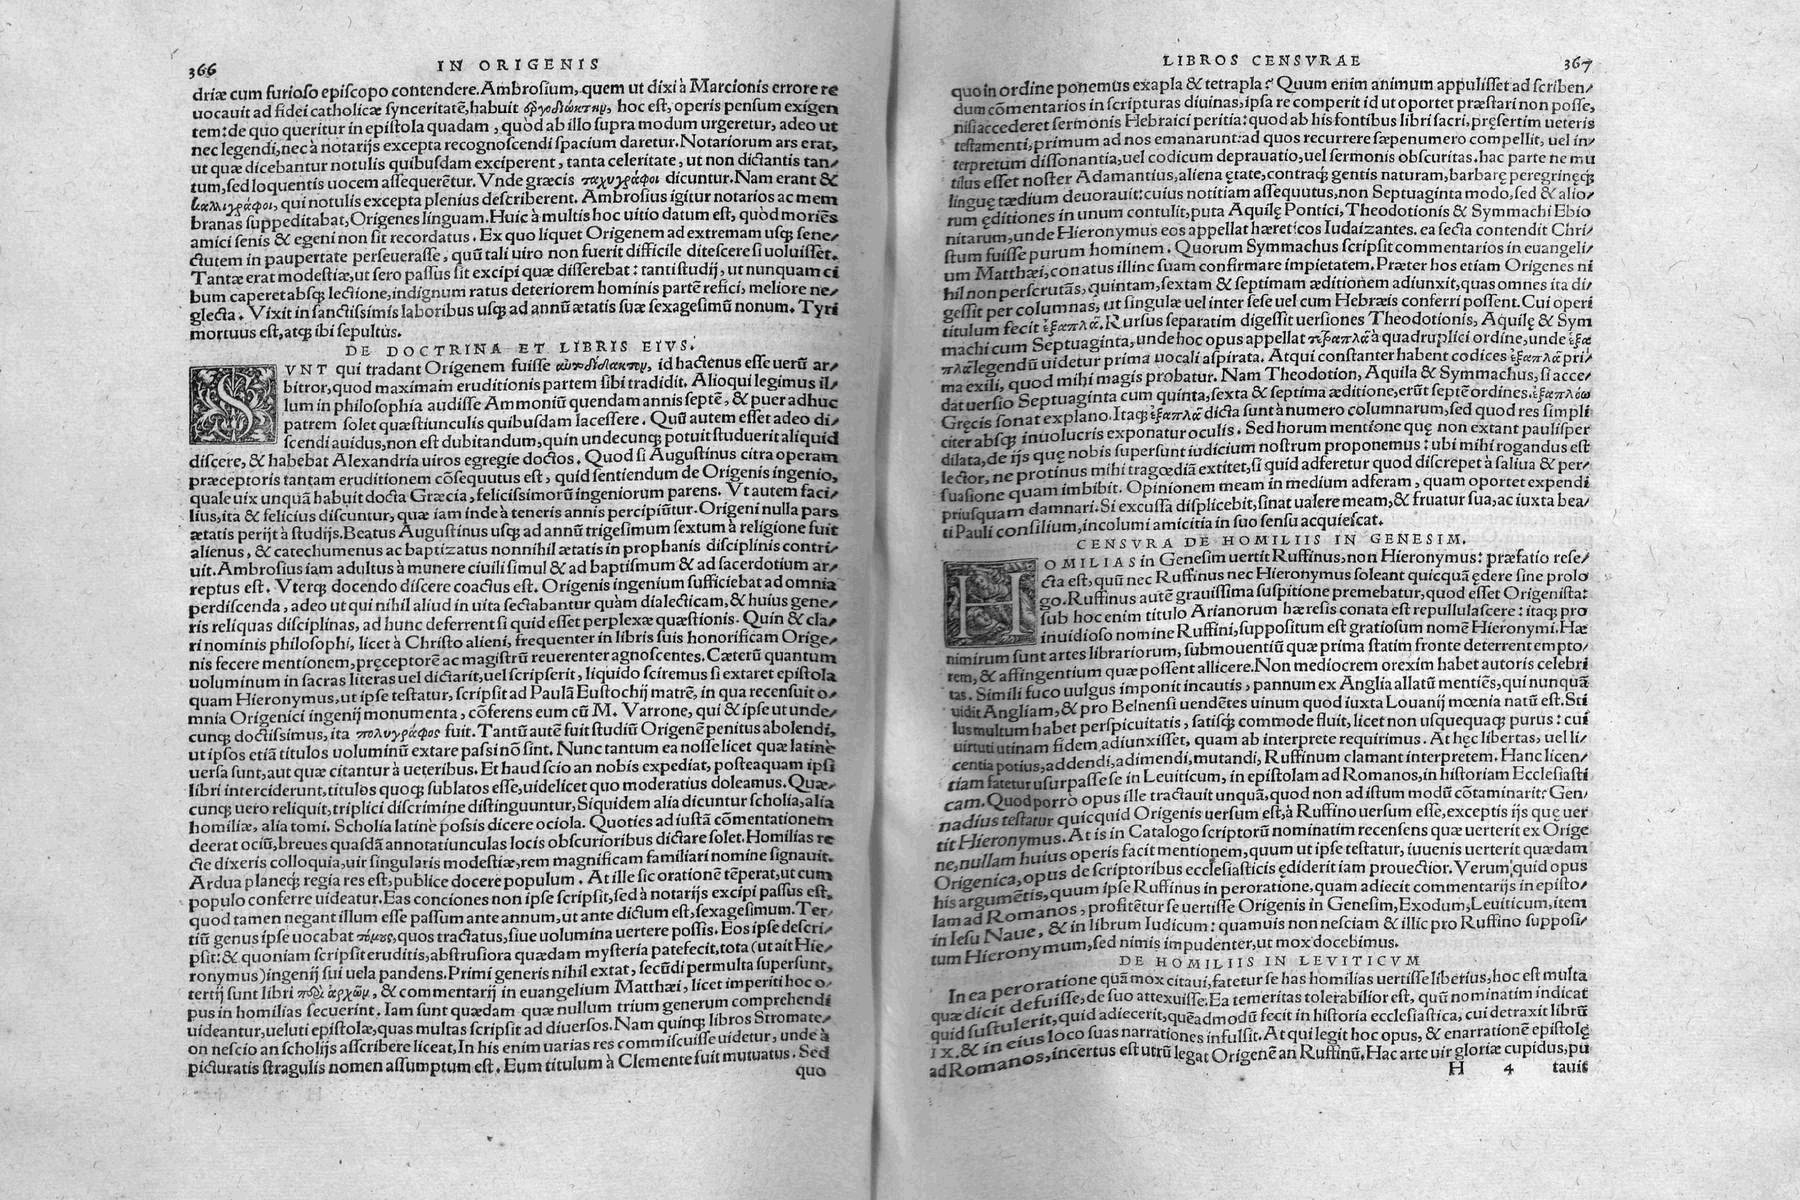 366 IN ORIGENIS
driæ cum furioso episcopo contendere. Ambrosium, quem ut dixi à Marcionis errore re
uocauit ad fidei catholicæ synceritatẽ, habuit ἐργοδιώκτην, hoc est, operis pensum exigen
tem: de quo queritur in epistola quadam, quòd ab illo supra modum urgeretur, adeo ut
nec legendi, nec à notarijs excepta recognoscendi spacium daretur. Notariorum ars erat,
ut quæ dicebantur notulis quibusdam exciperent, tanta celeritate, ut non dictantis tan/
tum, sed loquentis uocem assequerẽtur. Vnde græcis ταχυγράφοι dicuntur. Nam erant &
καλλιγράφοι, qui notulis excepta plenius describerent. Ambrosius igitur notarios ac mem
branas suppeditabat, Origenes linguam. Huic à multis hoc uitio datum est, quòd moriẽs
amici senis & egeni non sit recordatus. Ex quo liquet Origenem ad extremam usq; sene/
ctutem in paupertate perseuerasse, quũ tali uiro non fuerit difficile ditescere si uoluisset.
Tantæ erat modestiæ, ut sero passus sit excipi quæ disserebat: tanti studij, ut nunquam ci
bum caperet absq; lectione, indignum ratus deteriorem hominis partẽ refici, meliore ne/
glecta. Vixit in sanctissimis laboribus usq; ad annũ ætatis suæ sexagesimũ nonum. Tyri
mortuus est, atq; ibi sepultus.
DE DOCTRINA ET LIBRIS EIVS.
SVNT qui tradant Origenem fuisse αὐτοδίδακτον, id hactenus esse uerũ ar/
bitror, quod maximam eruditionis partem sibi tradidit. Alioqui legimus il/
lum in philosophia audisse Ammoniũ quendam annis septẽ, & puer adhuc
patrem solet quæstiunculis quibusdam lacessere. Quũ autem esset adeo di/
scendi auidus, non est dubitandum, quin undecunq; potuit studuerit aliquid
discere, & habebat Alexandria uiros egregie doctos. Quod si Augustinus citra operam
præceptoris tantam eruditionem cõsequutus est, quid sentiendum de Origenis ingenio,
quale uix unquã habuit docta Græcia, felicissimorũ ingeniorum parens. Vt autem faci/
lius, ita & felicius discuntur, quæ iam inde à teneris annis percipiũtur. Origeni nulla pars
ætatis perijt à studijs. Beatus Augustinus usq; ad annũ trigesimum sextum à religione fuit
alienus, & catechumenus ac baptizatus nonnihil ætatis in prophanis disciplinis contri/
uit. Ambrosius iam adultus à munere ciuili simul & ad baptismum & ad sacerdotium ar/
reptus est. Vterq; docendo discere coactus est. Origenis ingenium sufficiebat ad omnia
perdiscenda, adeo ut qui nihil aliud in uita sectabantur quàm dialecticam, & huius gene/
ris reliquas disciplinas, ad hunc deferrent si quid esset perplexæ quæstionis. Quin & cla/
ri nominis philosophi, licet à Christo alieni, frequenter in libris suis honorificam Orige/
nis fecere mentionem, pręceptorẽ ac magistrũ reuerenter agnoscentes. Cæterũ quantum
uoluminum in sacras literas uel dictarit, uel scripserit, liquido sciremus si extaret epistola
quam Hieronymus, ut ipse testatur, scripsit ad Paulã Eustochij matrẽ, in qua recensuit o/
mnia Origenici ingenij monumenta, cõferens eum cũ M. Varrone, qui & ipse ut unde/
cunq; doctissimus, ita πολυγράφος fuit. Tantũ autẽ fuit studiũ Origenẽ penitus abolendi,
ut ipsos etiã titulos uoluminũ extare passi nõ sint. Nunc tantum ea nosse licet quæ latinè
uersa sunt, aut quæ citantur à ueteribus. Et haud scio an nobis expediat, posteaquam ipsi
libri interciderunt, titulos quoq; sublatos esse, uidelicet quo moderatius doleamus. Quæ/
cunq; uero reliquit, triplici discrimine distinguuntur, Siquidem alia dicuntur scholia, alia
homiliæ, alia tomi. Scholia latinè possis dicere ociola. Quoties ad iustã cõmentationem
deerat ociũ, breues quasdã annotatiunculas locis obscurioribus dictare solet. Homilias re
cte dixeris colloquia, uir singularis modestiæ, rem magnificam familiari nomine signauit.
Ardua planeq; regia res est, publice docere populum. At ille sic orationẽ tẽperat, ut cum
populo conferre uideatur. Eas conciones non ipse scripsit, sed à notarijs excipi passus est,
quod tamen negant illum esse passum ante annum, ut ante dictum est, sexagesimum. Ter/
tiũ genus ipse uocabat τόμους, quos tractatus, siue uolumina uertere possis. Eos ipse descri/
psit: & quoniam scripsit eruditis, abstrusiora quædam mysteria patefecit, tota (ut ait Hie/
ronymus) ingenij sui uela pandens. Primi generis nihil extat, secũdi permulta supersunt,
tertij sunt libri περὶ ἀρχῶν, & commentarij in euangelium Matthæi, licet imperiti hoc o/
pus in homilias secuerint. Iam sunt quædam quæ nullum trium generum comprehendi
uideantur, ueluti epistolæ, quas multas scripsit ad diuersos. Nam quinq; libros Stromate/
on nescio an scholijs asscribere liceat, In his enim uarias res commiscuisse uidetur, unde à
picturatis stragulis nomen assumptum est. Eum titulum à Clemente fuit mutuatus. Sed
quo
LIBROS CENSVRAE 367
quo in ordine ponemus exapla & tetrapla? Quum enim animum appulisset ad scriben/
dum cõmentarios in scripturas diuinas, ipsa re comperit id ut oportet præstari non posse,
nisi accederet sermonis Hebraici peritia: quod ab his fontibus libri sacri, pręsertim ueteris
testamenti, primum ad nos emanarunt: ad quos recurrere sæpenumero compellit, uel in/
terpretum dissonantia, uel codicum deprauatio, uel sermonis obscuritas. hac parte ne mu
tilus esset noster Adamantius, aliena ętate, contraq; gentis naturam, barbarę peregrinęq;
linguę tædium deuorauit: cuius notitiam assequutus, non Septuaginta modo, sed & alio/
rum ęditiones in unum contulit, puta Aquilę Pontici, Theodotionis & Symmachi Ebio
nitarum, unde Hieronymus eos appellat hæreticos Iudaizantes. ea secta contendit Chri/
stum fuisse purum hominem. Quorum Symmachus scripsit commentarios in euangeli/
um Matthæi, conatus illinc suam confirmare impietatem. Præter hos etiam Origenes ni
hil non perscrutãs, quintam, sextam & septimam æditionem adiunxit, quas omnes ita di/
gessit per columnas, ut singulæ uel inter sese uel cum Hebræis conferri possent. Cui operi
titulum fecit ἑξαπλᾶ. Rursus separatim digessit uersiones Theodotionis, Aquilę & Sym
machi cum Septuaginta, unde hoc opus appellat τετραπλᾶ à quadruplici ordine, unde ἑξα
πλᾶ legendũ uidetur prima uocali aspirata. Atqui constanter habent codices ἐξαπλᾶ pri/
ma exili, quod mihi magis probatur. Nam Theodotion, Aquila & Symmachus, si acce/
dat uersio Septuaginta cum quinta, sexta & septima æditione, erũt septẽ ordines. ἐξαπλόω
Gręcis sonat explano. Itaq; ἐξαπλᾶ dicta sunt à numero columnarum, sed quod res simpli
citer absq; inuolucris exponatur oculis. Sed horum mentione quę non extant paulisper
dilata, de ijs quę nobis supersunt iudicium nostrum proponemus: ubi mihi rogandus est
lector, ne protinus mihi tragœdiã extitet, si quid adferetur quod discrepet à saliua & per/
suasione quam imbibit. Opinionem meam in medium adferam, quam oportet expendi
priusquam damnari. Si excussa displicebit, sinat ualere meam, & fruatur sua, ac iuxta bea/
ti Pauli consilium, incolumi amicitia in suo sensu acquiescat.
CENSVRA DE HOMILIIS IN GENESIM.
HOMILIAS in Genesim uertit Ruffinus, non Hieronymus: præfatio rese/
cta est, quũ nec Ruffinus nec Hieronymus soleant quicquã ędere sine prolo
go. Ruffinus autẽ grauissima suspitione premebatur, quod esset Origenista:
sub hoc enim titulo Arianorum hæresis conata est repullulascere: itaq; pro
inuidioso nomine Ruffini, suppositum est gratiosum nomẽ Hieronymi. Hæ
nimirum sunt artes librariorum, submouentiũ quæ prima statim fronte deterrent empto/
rem, & affingentium quæ possent allicere. Non mediocrem orexim habet autoris celebri
tas. Simili fuco uulgus imponit incautis, pannum ex Anglia allatũ mentiẽs, qui nunquã
uidit Angliam, & pro Belnensi uendẽtes uinum quod iuxta Louanij mœnia natũ est. Sti
lus multum habet perspicuitatis, satisq; commode fluit, licet non usquequaq; purus: cui
uirtuti utinam fidem adiunxisset, quam ab interprete requirimus. At hęc libertas, uel li/
centia potius, addendi, adimendi, mutandi, Ruffinum clamant interpretem. Hanc licen/
tiam fatetur usurpasse se in Leuiticum, in epistolam ad Romanos, in historiam Ecclesiasti
cam. Quod porrò opus ille tractauit unquã, quod non ad istum modũ cõtaminarit? Gen/
nadius testatur quicquid Origenis uersum est, à Ruffino uersum esse, exceptis ijs quę uer
tit Hieronymus. At is in Catalogo scriptorũ nominatim recensens quæ uerterit ex Orige
ne, nullam huius operis facit mentionem, quum ut ipse testatur, iuuenis uerterit quædam
Origenica, opus de scriptoribus ecclesiasticis ędiderit iam prouectior. Verum quid opus
his argumẽtis, quum ipse Ruffinus in peroratione, quam adiecit commentarijs in episto/
lam ad Romanos, profitẽtur se uertisse Origenis in Genesim, Exodum, Leuiticum, item
in Iesu Naue, & in librum Iudicum: quamuis non nesciam & illic pro Ruffino supposi/
tum Hieronymum, sed nimis impudenter, ut mox docebimus.
DE HOMILIIS IN LEVITICVM
In ea peroratione quã mox citaui, fatetur se has homilias uertisse liberius, hoc est multa
quæ dicit defuisse, de suo attexuisse. Ea temeritas tolerabilior est, quũ nominatim indicat
quid sustulerit, quid adiecerit, quẽadmodũ fecit in historia ecclesiastica, cui detraxit librũ
IX. & in eius loco suas narrationes infulsit. At qui legit hoc opus, & enarrationẽ epistolę
ad Romanos, incertus est utrũ legat Origenẽ an Ruffinũ, Hac arte uir gloriæ cupidus, pu
H 4 tauit